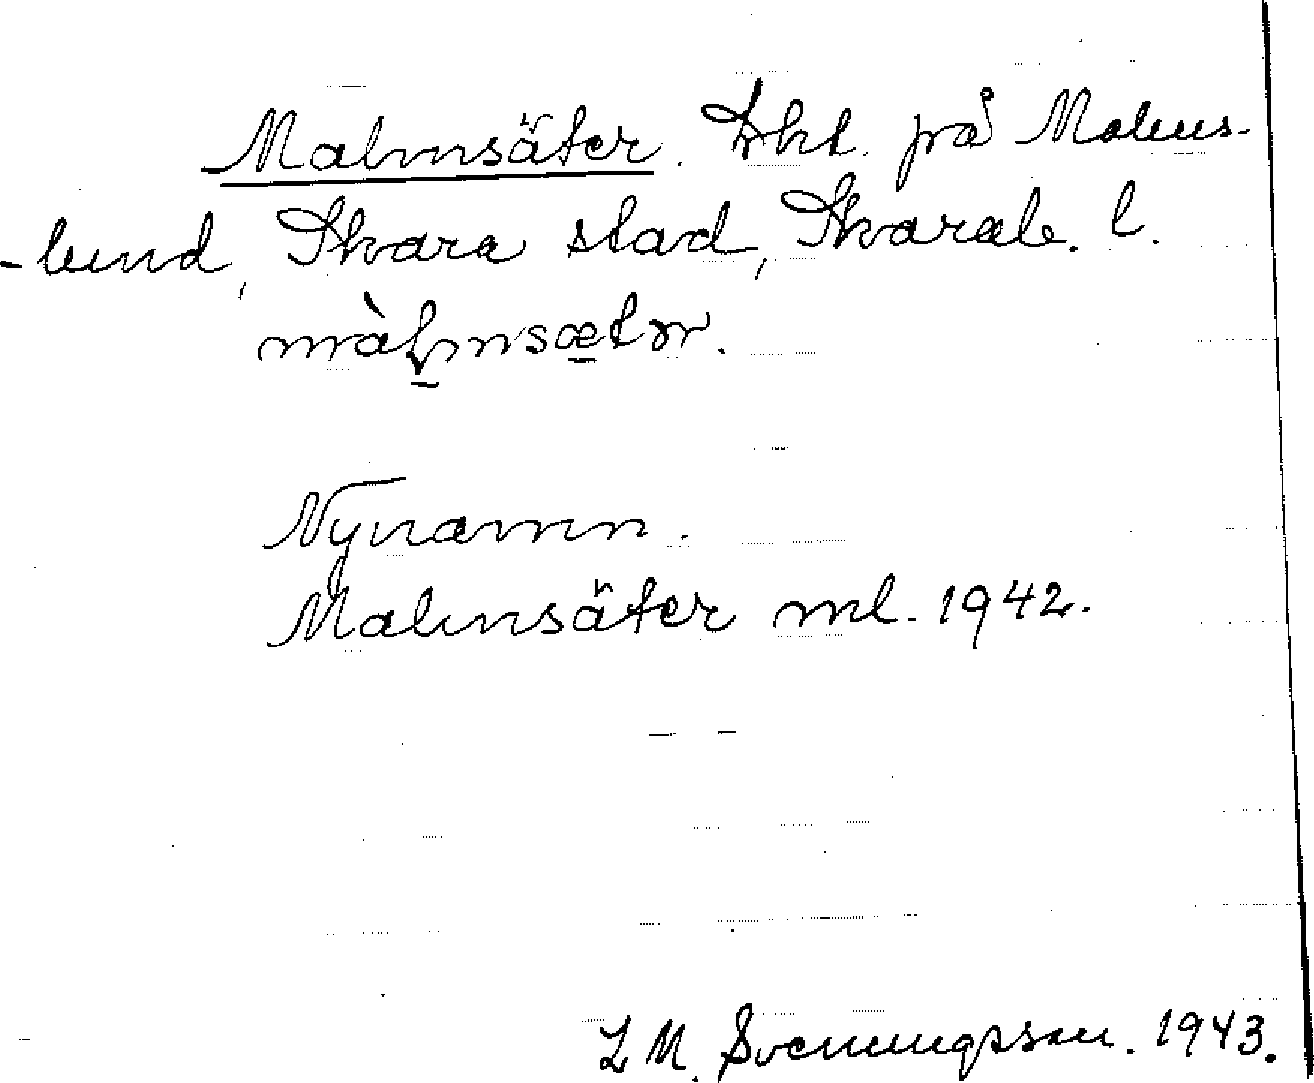 Malmsäter. Lht. på Malms-
-lund, Skara stad, Skarab. l.
màlmsætər.
Nynamn.
Malmsäter ml. 1942.
L M. Svenungsson. 1943.